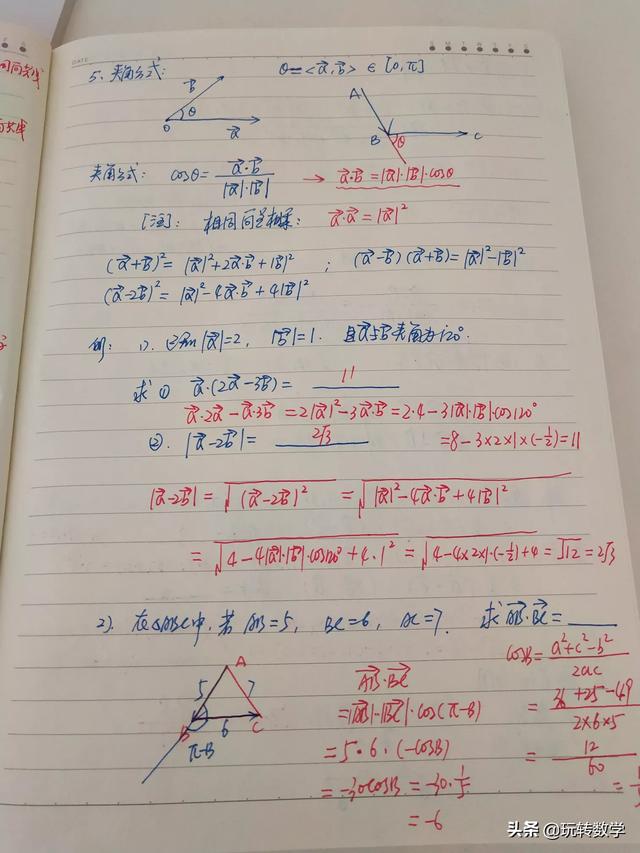 DATE
S M T W T F S
5、夹角公式: θ=<a⃗,b⃗> ∈ [0,π]
b⃗
θ
O
a⃗
A
B
θ
C
夹角公式: cosθ = a⃗·b⃗ / |a⃗|·|b⃗| → a⃗·b⃗ = |a⃗|·|b⃗|·cosθ
[注]: 相同向量相乘: a⃗·a⃗ = |a⃗|²
(a⃗+b⃗)² = |a⃗|²+2a⃗·b⃗+|b⃗|² ; (a⃗-b⃗)(a⃗+b⃗) = |a⃗|²-|b⃗|²
(a⃗-2b⃗)² = |a⃗|²-4a⃗·b⃗+4|b⃗|²
例: 1). 已知|a⃗|=2, |b⃗|=1. 且a⃗与b⃗夹角为120°.
求 ① a⃗·(2a⃗-3b⃗) = 11
a⃗·2a⃗-a⃗·3b⃗ = 2|a⃗|²-3a⃗·b⃗ = 2·4-3|a⃗|·|b⃗|·cos120°
②. |a⃗-2b⃗| = 2√3
=8-3×2×1×(-1/2)=11
|a⃗-2b⃗| = √(a⃗-2b⃗)² = √|a⃗|²-4a⃗·b⃗+4|b⃗|²
= √4-4|a⃗|·|b⃗|·cos120°+4·1² = √4-4×2×1·(-1/2)+4 = √12 = 2√3
2). 在△ABC中, 若 AB=5, BC=6, AC=7. 求 AB⃗·BC⃗ = ____
A
5
7
B
6
C
π-B
AB⃗·BC⃗
=|AB⃗|·|BC⃗|·cos(π-B)
=5·6·(-cosB)
=-30cosB = -30·1/5
=-6
cosB = a²+c²-b² / 2ac
= 36+25-49 / 2×6×5
= 12 / 60
= 1/5
头条 @玩转数学